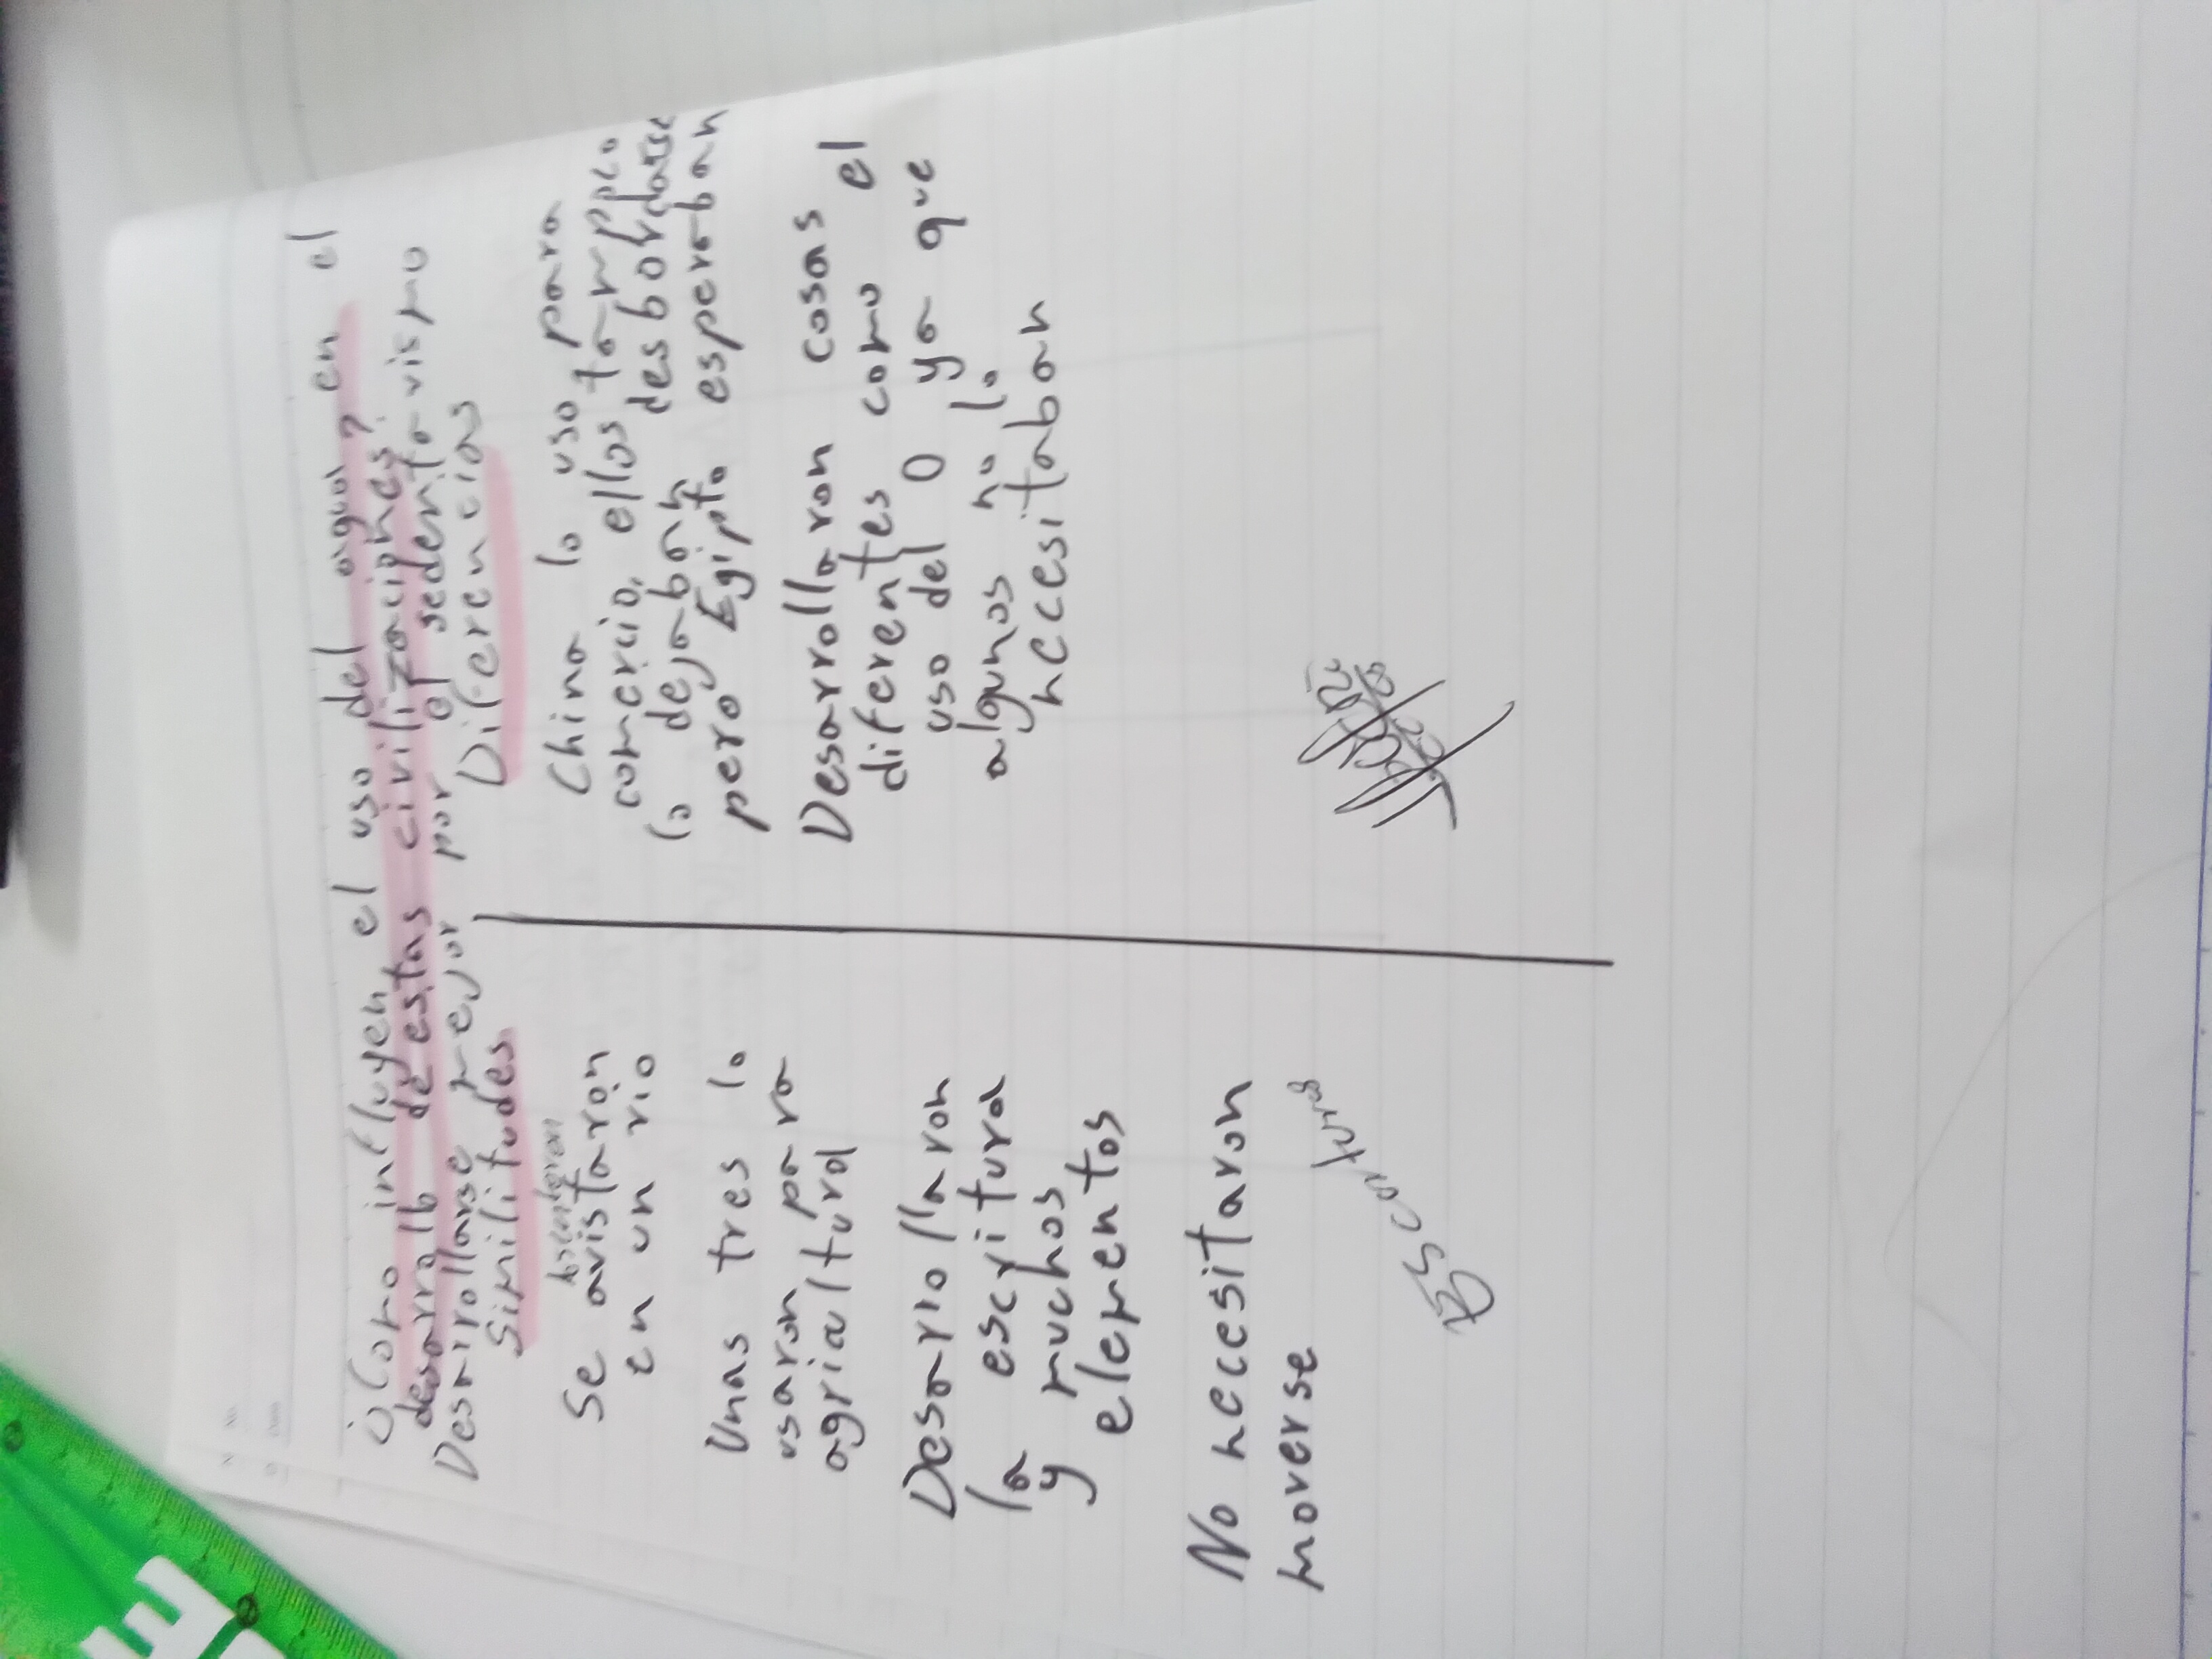 ¿Como influyen el uso del agua? en el
desarrollo de estas civilizaciones?
Desarrollarse mejor por el sedentarismo
Similitudes
Se avistaron
en un rio
Unas tres lo
usaron para
agricultura
Desarrollaron
la escritura
y muchos
elementos
No necesitaron
moverse
Diferencias
China lo uso para
comercio, ellos tampoco
lo dejaban desbordarse
pero Egipto esperaban
Desarrollaron cosas
diferentes como el
uso del 0 ya que
algunos no lo
necesitaban